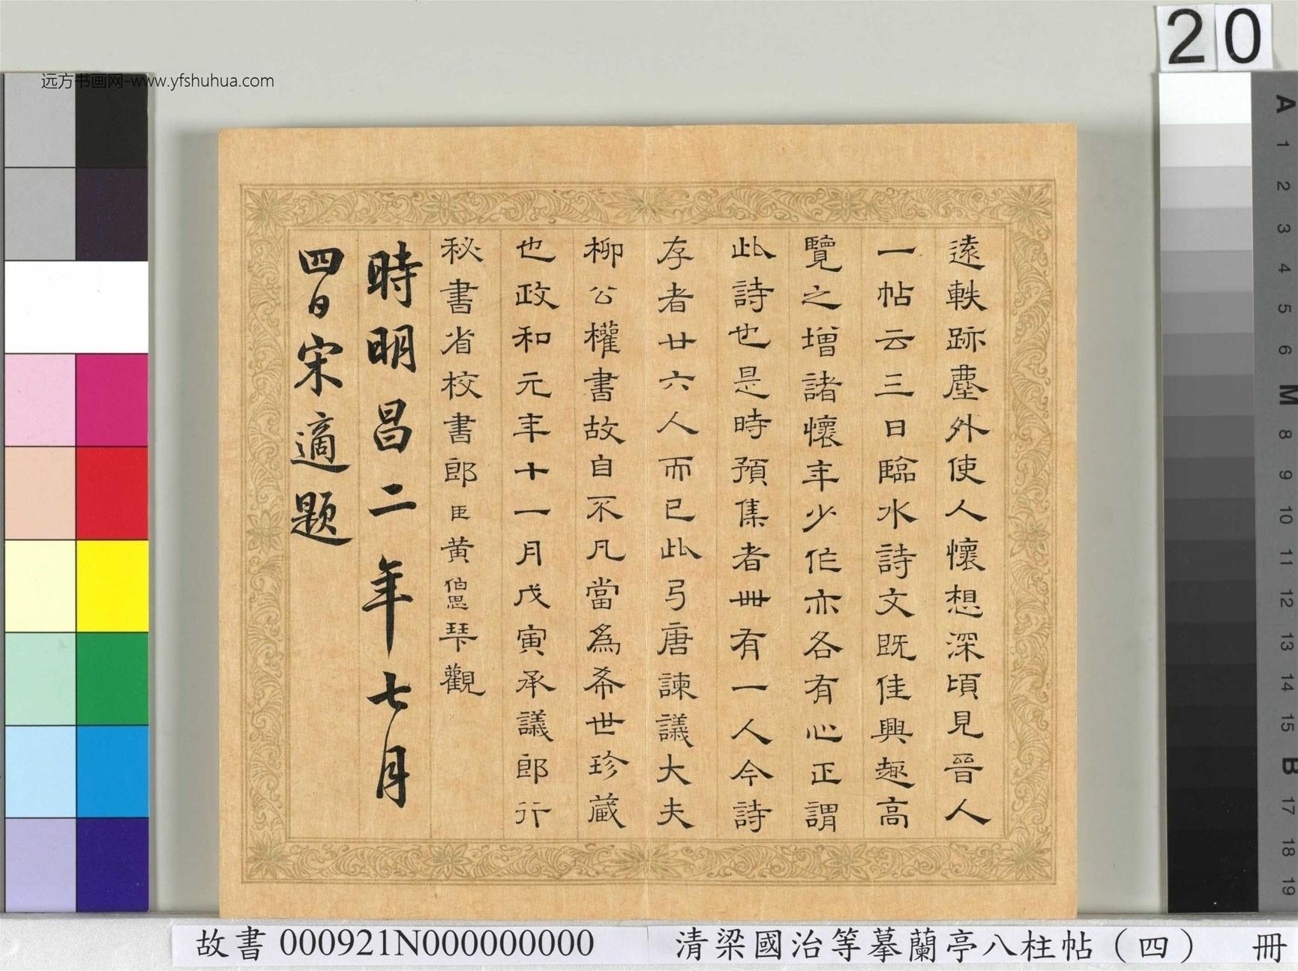 20
远方书画网-www.yfshuhua.com
遠軼跡塵外使人懷想深頃見晉人
一帖云三日臨水詩文既佳興趣高
覽之增諸懷年少作亦各有心正謂
此詩也是時預集者卌有一人今詩
存者廿六人而已此弓唐諫議大夫
柳公權書故自不凡當為希世珍藏
也政和元年十一月戊寅承議郎行
秘書省校書郎臣黃伯思琴觀
時明昌二年七月
四日宋適題
A
1
2
3
4
5
6
M
8
9
10
11
12
13
14
15
B
17
18
19
故書 000921N000000000
清梁國治等摹蘭亭八柱帖（四） 冊